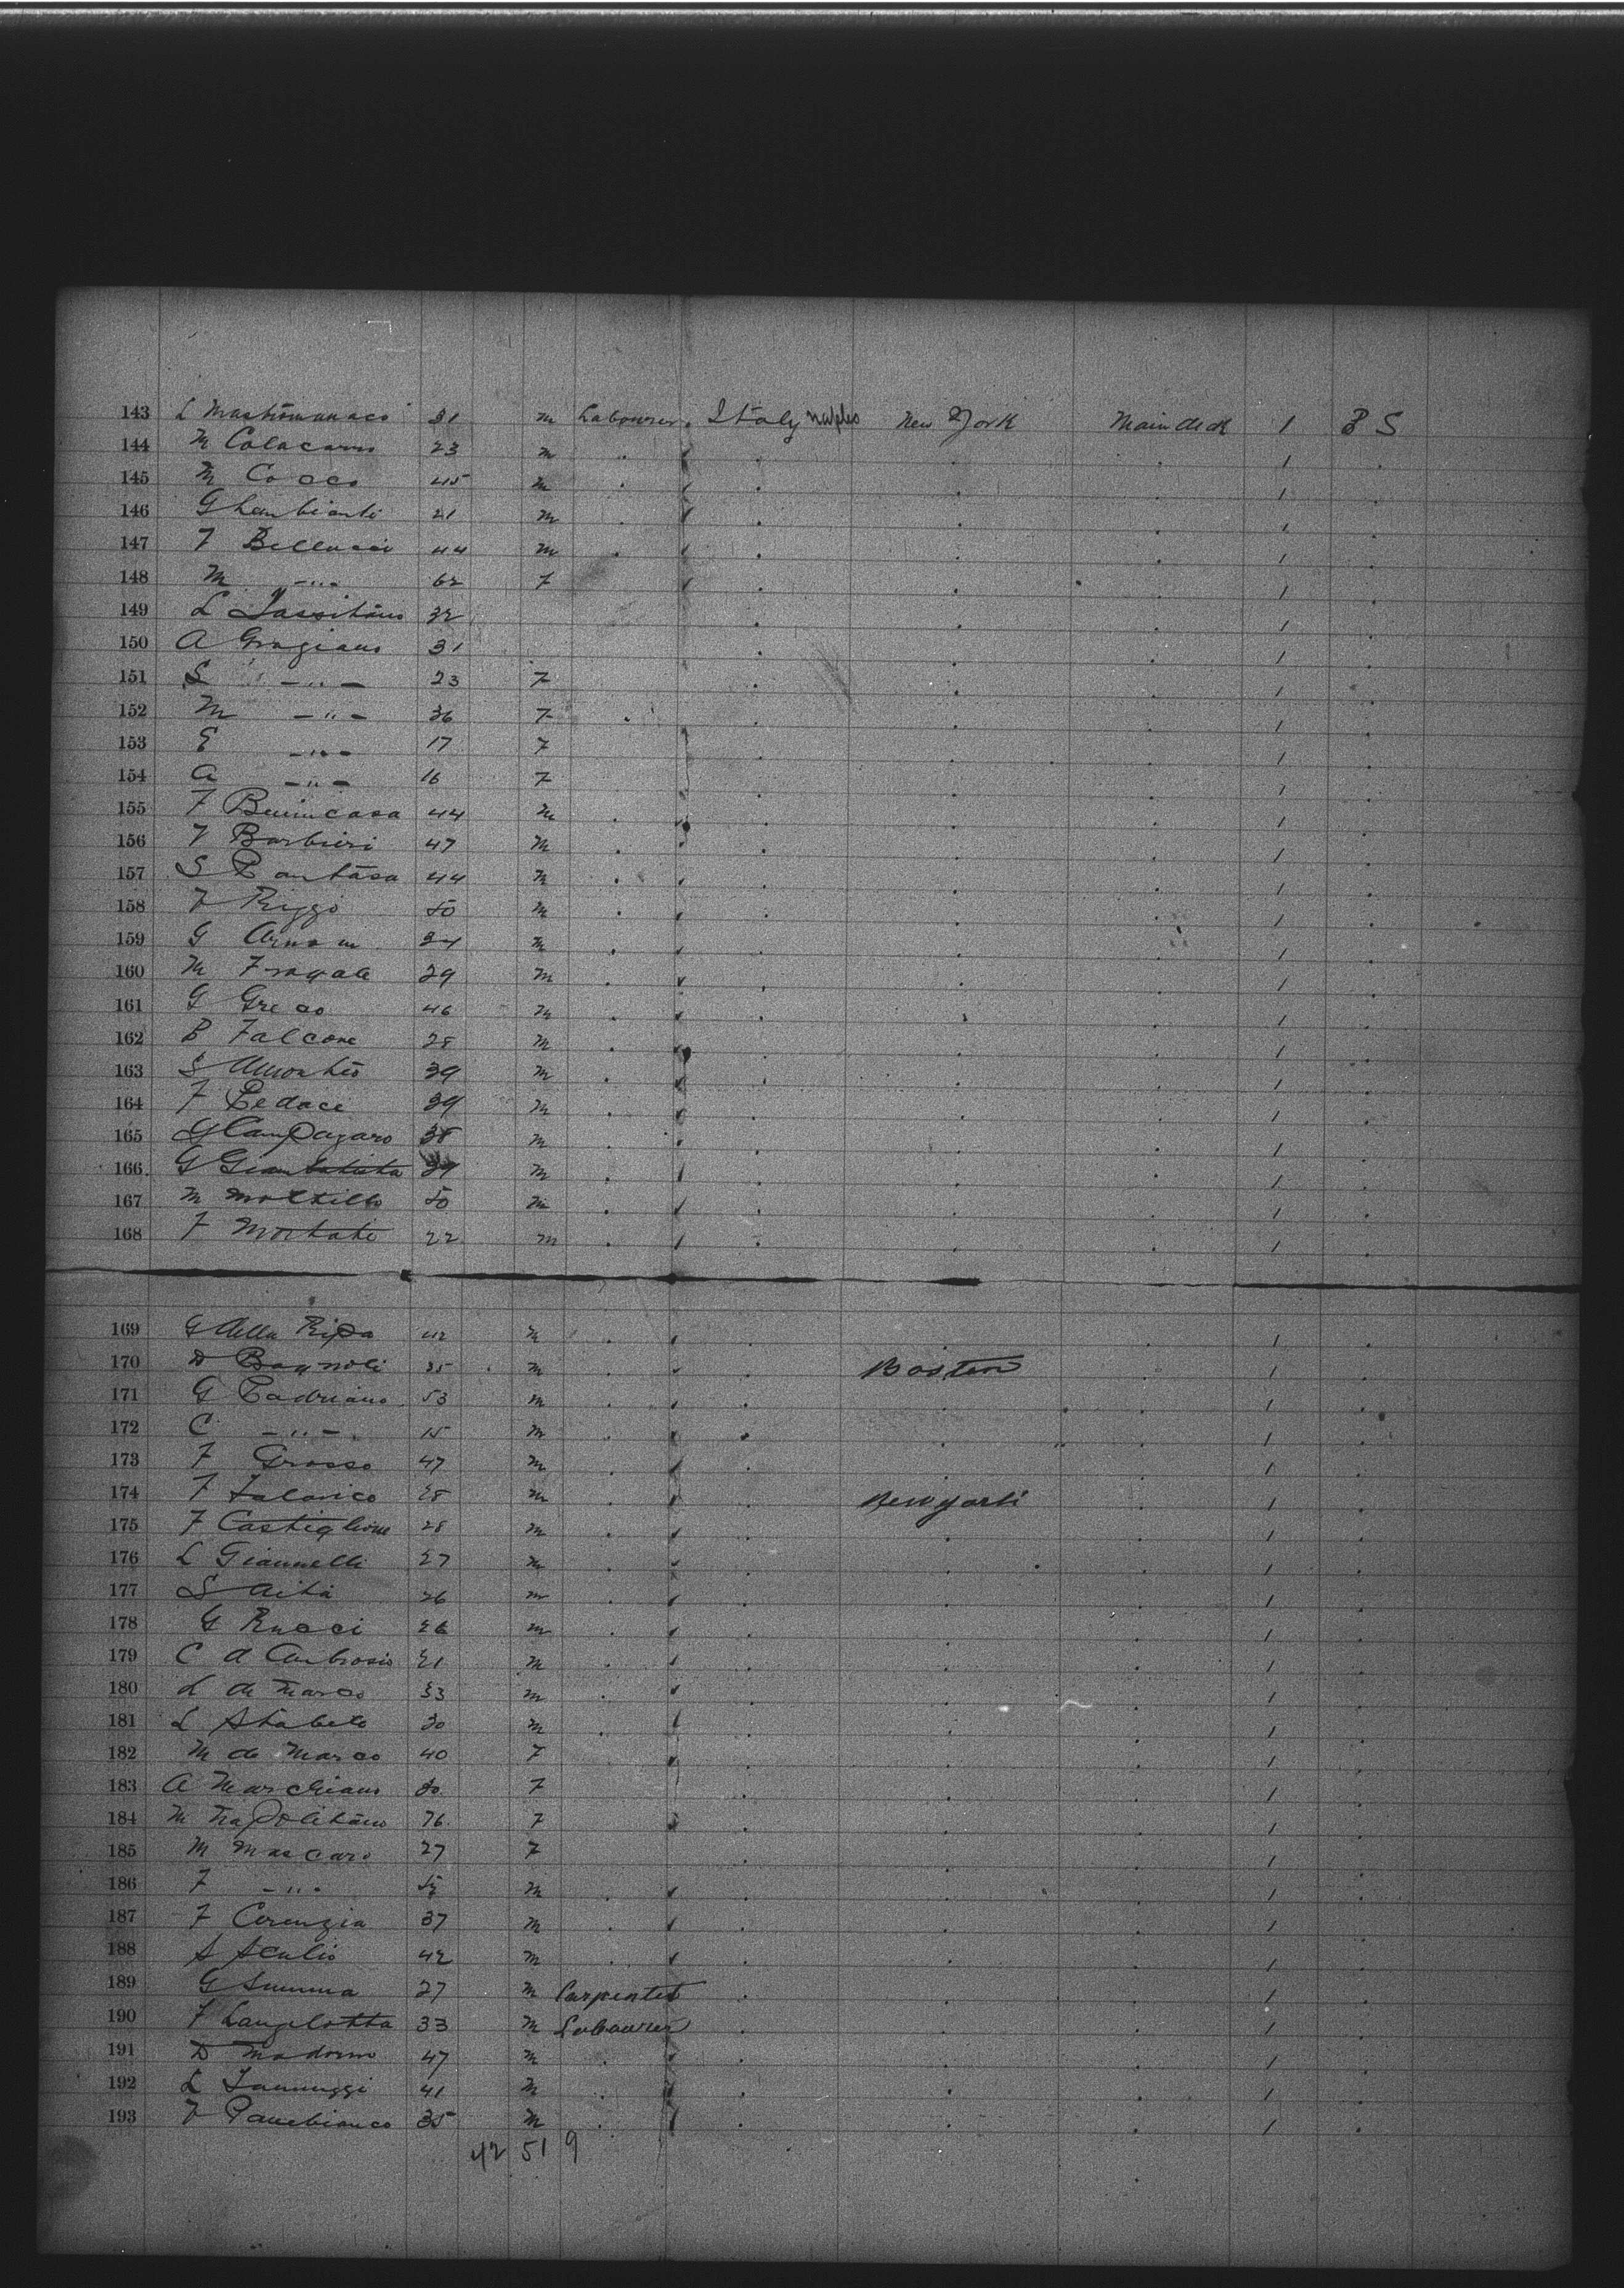 143 L Mastromonaco 31 m Labourer. Italy Naples New York Main deck 1 B S
144 M 23 m . . . . 1 .
145 M Cocco 45 m . . . . 1 .
146 G 21 m . . . . 1 .
147 F Bellucci 44 m . . . . 1 .
148 M -"- 62 F . . . 1 .
149 L 32 . . . 1 .
150 A Graziano 31 . . . 1 .
151 S -"- 23 F . . . 1 .
152 M -"- 36 F . . . . 1 .
153 E -"- 17 F . . . 1 .
154 A -"- 16 F . . . 1 .
155 F Benincasa 44 m . . . . 1 .
156 V Barbieri 47 m . . . . 1 .
157 S Pantasa 44 m . . . . 1 .
158 V Rizzo 50 m . . . . 1 .
159 G 34 m . . . . 1 .
160 M Fragale 29 m . . . . 1 .
161 G Greco 46 m . . . . 1 .
162 B Falcone 28 m . . . . 1 .
163 S 39 m . . . . 1 .
164 F Pedace 39 m . . . . 1 .
165 G 38 m . . . . 1 .
166 G Giambatista m . . . . 1 .
167 M 50 m . . . . 1 .
168 F Mortati 22 m . . . . 1 .
169 G Della Ripa 42 m . . . . 1 .
170 D Bagnoli 35 m . . Boston . 1 .
171 G Padriano 53 m . . . . 1 .
172 C -"- 15 m . . . . 1 .
173 F Grosso 47 m . . . . 1 .
174 F Talarico 28 m . . New york . 1 .
175 F Castiglione 28 m . . . . 1 .
176 L Giannelli 27 m . . . . 1 .
177 S Aita 26 m . . . . 1 .
178 G Rucci 26 m . . . . 1 .
179 C d Ambrosio 21 m . . . . 1 .
180 L de Marco 33 m . . . . 1 .
181 L Stabele 30 m . . . . 1 .
182 M de Marco 40 F . . . 1 .
183 A Marchiano F . . . 1 .
184 M Napolitano 76 F . . . 1 .
185 M Mascaro 27 F . . . 1 .
186 F -"- m . . . . 1 .
187 F Cerenzia 37 m . . . . 1 .
188 A Sculio 42 m . . . . 1 .
189 G Summa 27 m Carpenter . . . 1 .
190 F Langelotta 33 m Labourer . . . 1 .
191 D Madormo 47 m . . . . 1 .
192 L Iannuzzi 41 m . . . . 1 .
193 V Panebianco 35 m . . . . 1 .
42 51 9